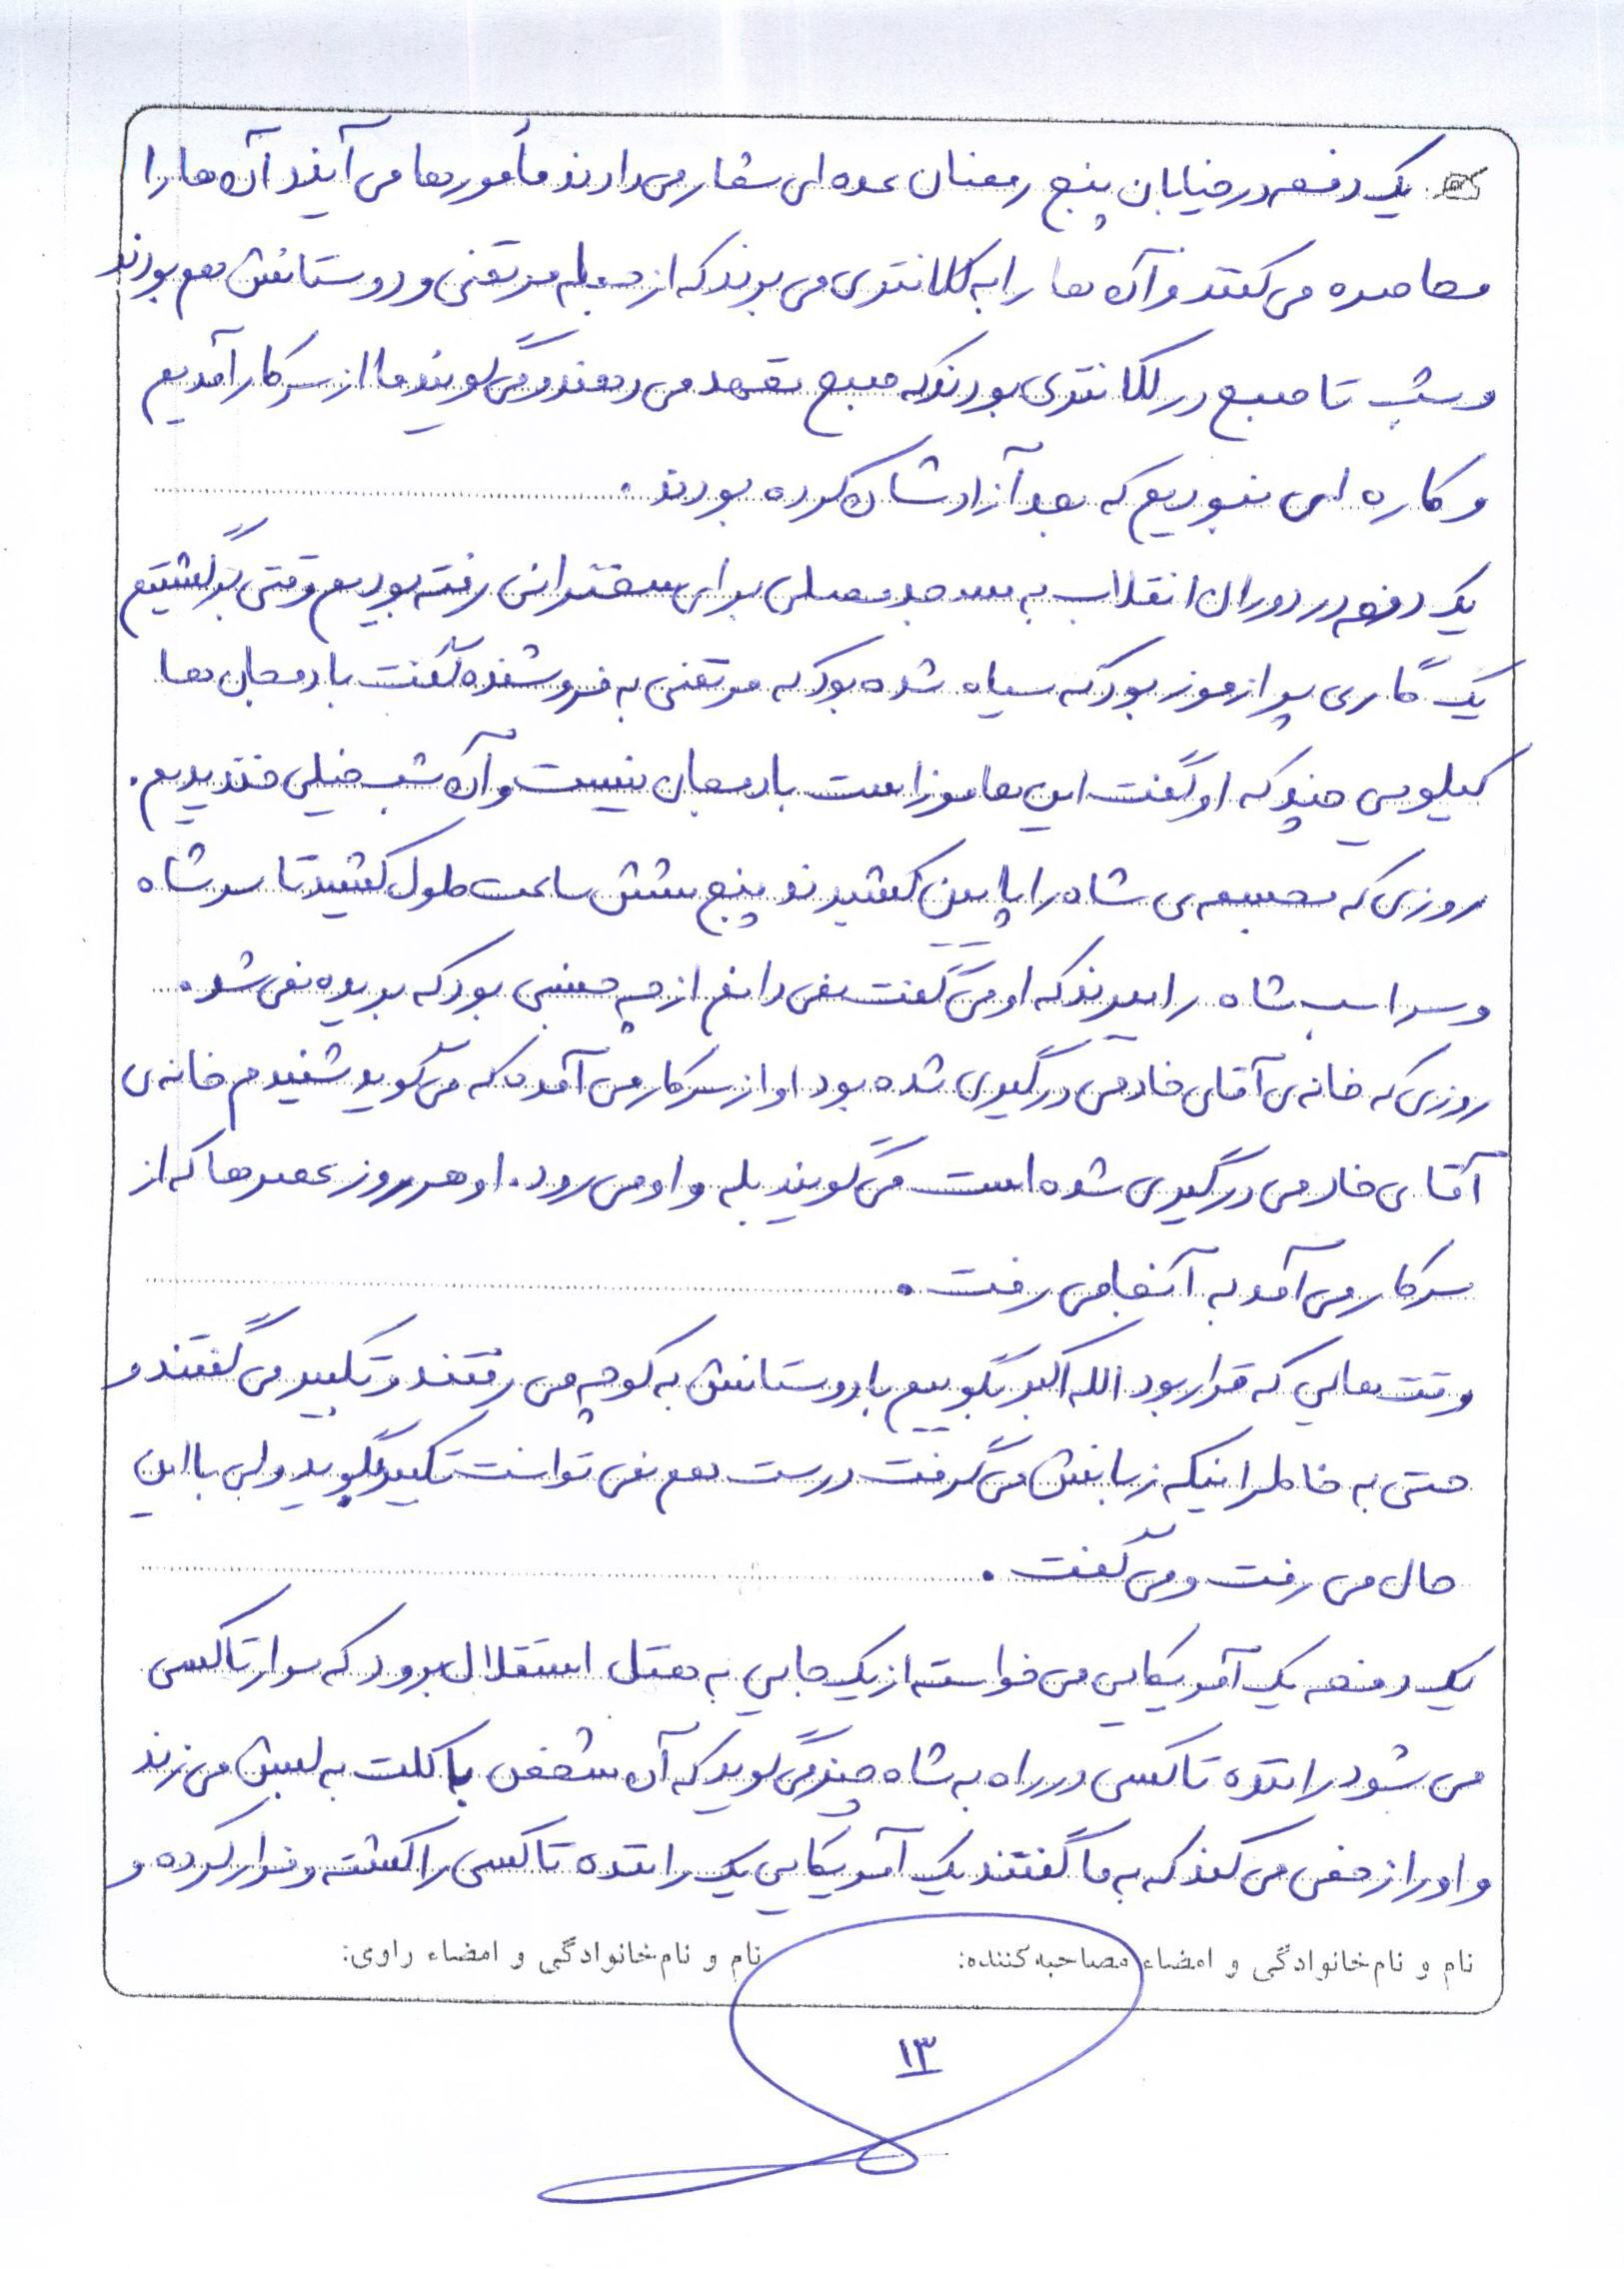 یک دفعه در خیابان پنج رمضان عده ای شعار می دادند مأمورها می آیند آن ها را
محاصره می کنند و آن ها را به کلانتری می برند که از جمله مرتضی و دوستانش هم بودند
و شب تا صبح در کلانتری بودند که صبح تعهد می دهند و می گویند ما از سر کار آمدیم
و کاره ای نبودیم که بعد آزادشان کرده بودند.
یک دفعه در دوران انقلاب به مسجد مصلی برای سخنرانی رفته بودیم وقتی برگشتیم
یک گاری پر از موز بود که سیاه شده بود که مرتضی به فروشنده گفت بادمجان ها
کیلویی چند که او گفت این ها موز است بادمجان نیست و آن شب خیلی خندیدیم.
روزی که مجسمه ی شاه را پایین کشیدند پنج شش ساعت طول کشید تا سر شاه
و سر اسب شاه را ببرند که او می گفت نمی دانم از چه جنسی بود که بریده نمی شد.
روزی که خانه ی آقای خادمی درگیری شده بود او از سر کار می آمده که می گوید شنیدم خانه ی
آقای خادمی درگیری شده است می گویند بله و او می رود. او هر روز عصرها که از
سر کار می آمد به آنجا می رفت.
وقت هایی که قرار بود الله اکبر بگوییم با دوستانش به کوچه می رفتند و تکبیر می گفتند و
حتی به خاطر اینکه زبانش می گرفت درست هم نمی توانست تکبیر بگوید ولی با این
حال می رفت و می گفت.
یک دفعه یک آمریکایی می خواسته از یک جایی به هتل استقلال برود که سوار تاکسی
می شود راننده تاکسی در راه به شاه چیز می گوید که آن شخص با کلت به لبش می زند
و او را زخمی می کند که به ما گفتند یک آمریکایی یک راننده تاکسی را کشته و فرار کرده و
نام و نام خانوادگی و امضاء مصاحبه کننده: نام و نام خانوادگی و امضاء راوی:
۱۳